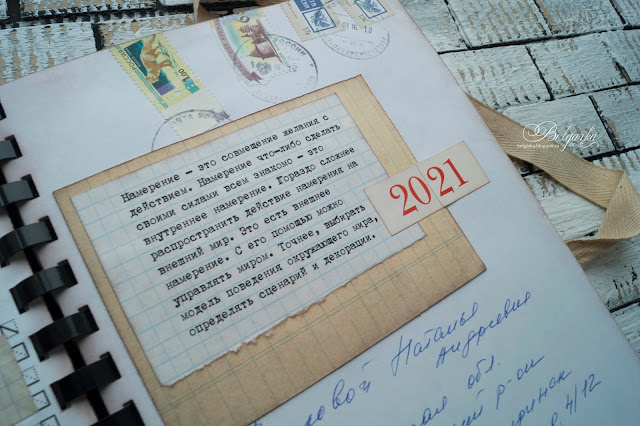 Намерение – это совмещение желания с
действием. Намерение что-либо сделать
своими силами всем знакомо – это
внутреннее намерение. Гораздо сложнее
распространить действие намерения на
внешний мир. Это есть внешнее
намерение. С его помощью можно
управлять миром. Точнее, выбирать
модель поведения окружающего мира,
определять сценарий и декорации.
2021
Belyarka
Наталье
Андреевне
обл.
р-он
4/12